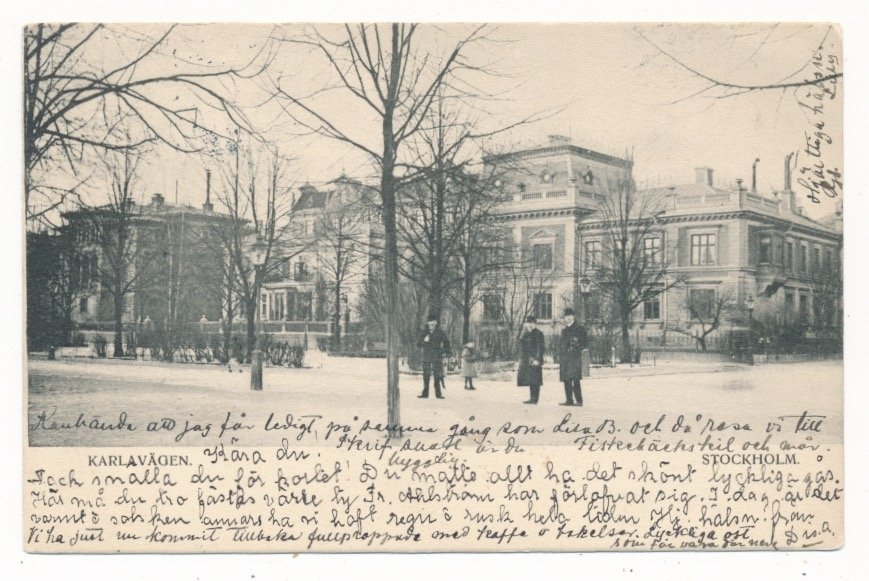 Hjärtliga hälsn.
Kanhända att jag får ledigt på samma gång som Lisa B. och då resa vi till
Skrif snart är du Fiskebäckskil och mår
hygglig
KARLAVÄGEN. Kära du. STOCKHOLM.
Tack snälla du för kortet! Du måtte allt ha det skönt lyckliga gås.
Här må du tro fästas värre ty Fr. Ahlström har förlofvat sig. I dag är det
varmt o solsken annars ha vi haft regn o rusk hela tiden Hj. hälsn. från
Vi ha just nu kommit tillbaka fullproppade med kaffe o bakelser. Lyckliga ost
som får vara där nere